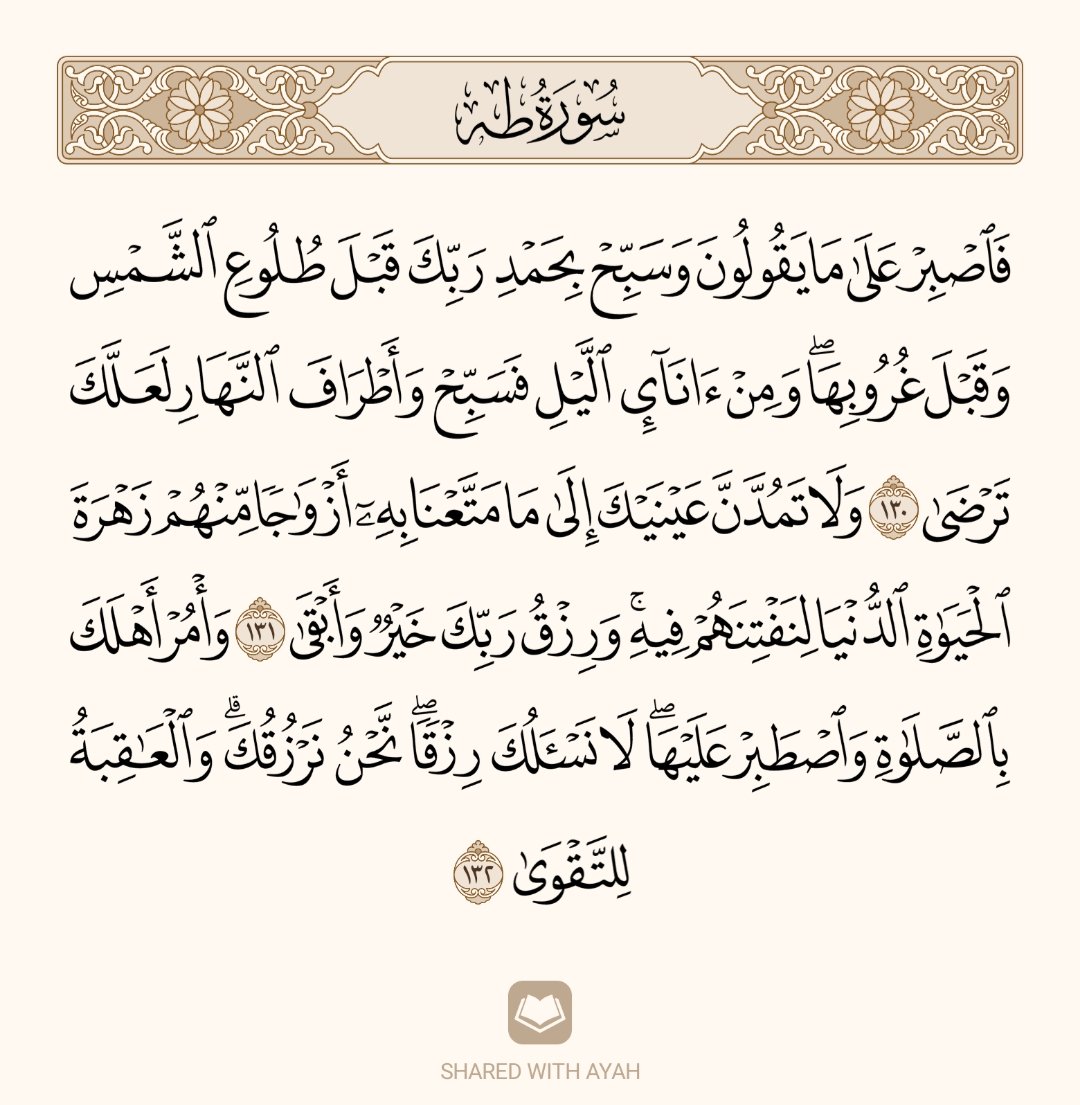 سُورَةُ طه
فَٱصۡبِرۡ عَلَىٰ مَا يَقُولُونَ وَسَبِّحۡ بِحَمۡدِ رَبِّكَ قَبۡلَ طُلُوعِ ٱلشَّمۡسِ
وَقَبۡلَ غُرُوبِهَاۖ وَمِنۡ ءَانَآيِٕ ٱلَّيۡلِ فَسَبِّحۡ وَأَطۡرَافَ ٱلنَّهَارِ لَعَلَّكَ
تَرۡضَىٰ ١٣٠ وَلَا تَمُدَّنَّ عَيۡنَيۡكَ إِلَىٰ مَا مَتَّعۡنَا بِهِۦٓ أَزۡوَٰجٗا مِّنۡهُمۡ زَهۡرَةَ
ٱلۡحَيَوٰةِ ٱلدُّنۡيَا لِنَفۡتِنَهُمۡ فِيهِۚ وَرِزۡقُ رَبِّكَ خَيۡرٞ وَأَبۡقَىٰ ١٣١ وَأۡمُرۡ أَهۡلَكَ
بِٱلصَّلَوٰةِ وَٱصۡطَبِرۡ عَلَيۡهَاۖ لَا نَسۡـَٔلُكَ رِزۡقٗاۖ نَّحۡنُ نَرۡزُقُكَۗ وَٱلۡعَٰقِبَةُ
لِلتَّقۡوَىٰ ١٣٢
SHARED WITH AYAH